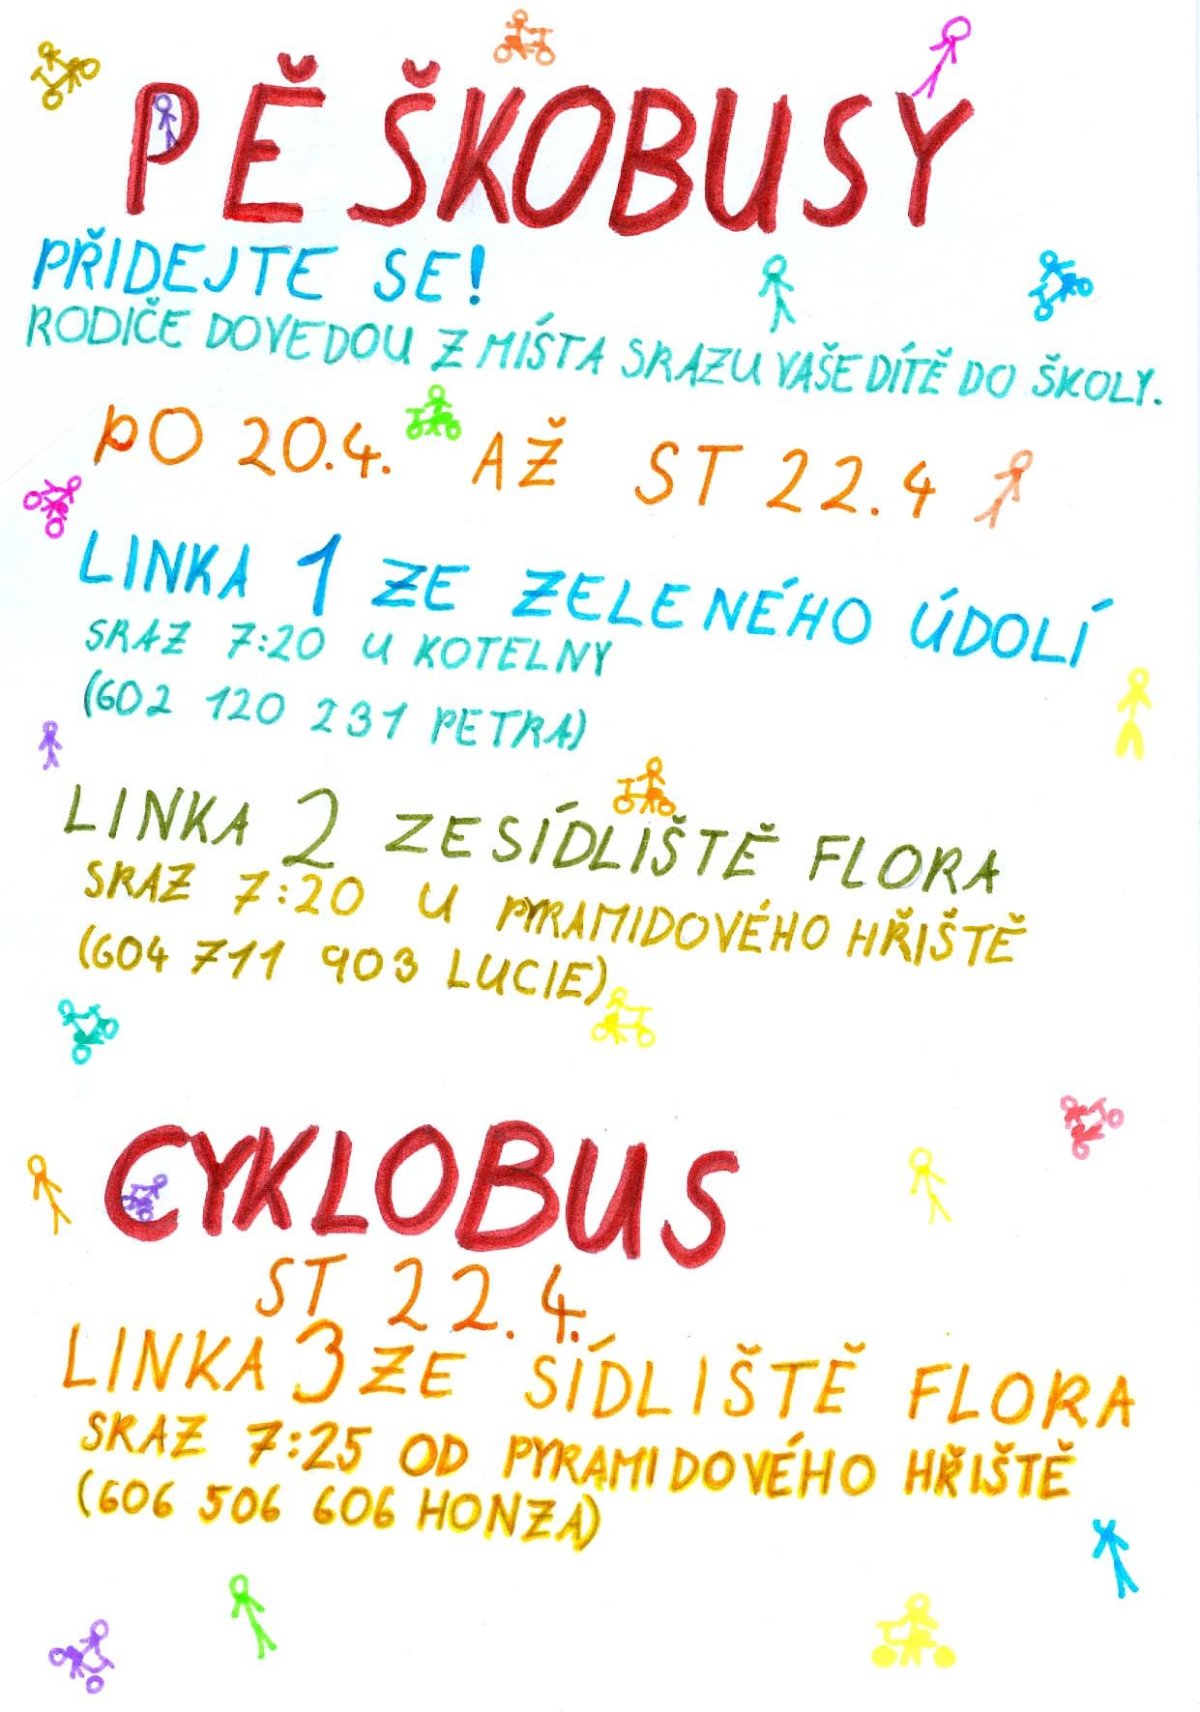 PĚŠKOBUSY
PŘIDEJTE SE!
RODIČE DOVEDOU Z MÍŠTA SRAZU VAŠE DÍTĚ DO ŠKOLY.
PO 20.4. AŽ ST 22.4
LINKA 1 ZE ZELENÉHO ÚDOLÍ
SRAZ 7:20 U KOTELNY
(602 120 231 PETRA)
LINKA 2 ZE SÍDLIŠTĚ FLORA
SRAZ 7:20 U PYRAMIDOVÉHO HŘIŠTĚ
(604 711 903 LUCIE)
CYKLOBUS
ST 22.4.
LINKA 3 ZE SÍDLIŠTĚ FLORA
SRAZ 7:25 OD PYRAMIDOVÉHO HŘIŠTĚ
(606 506 606 HONZA)